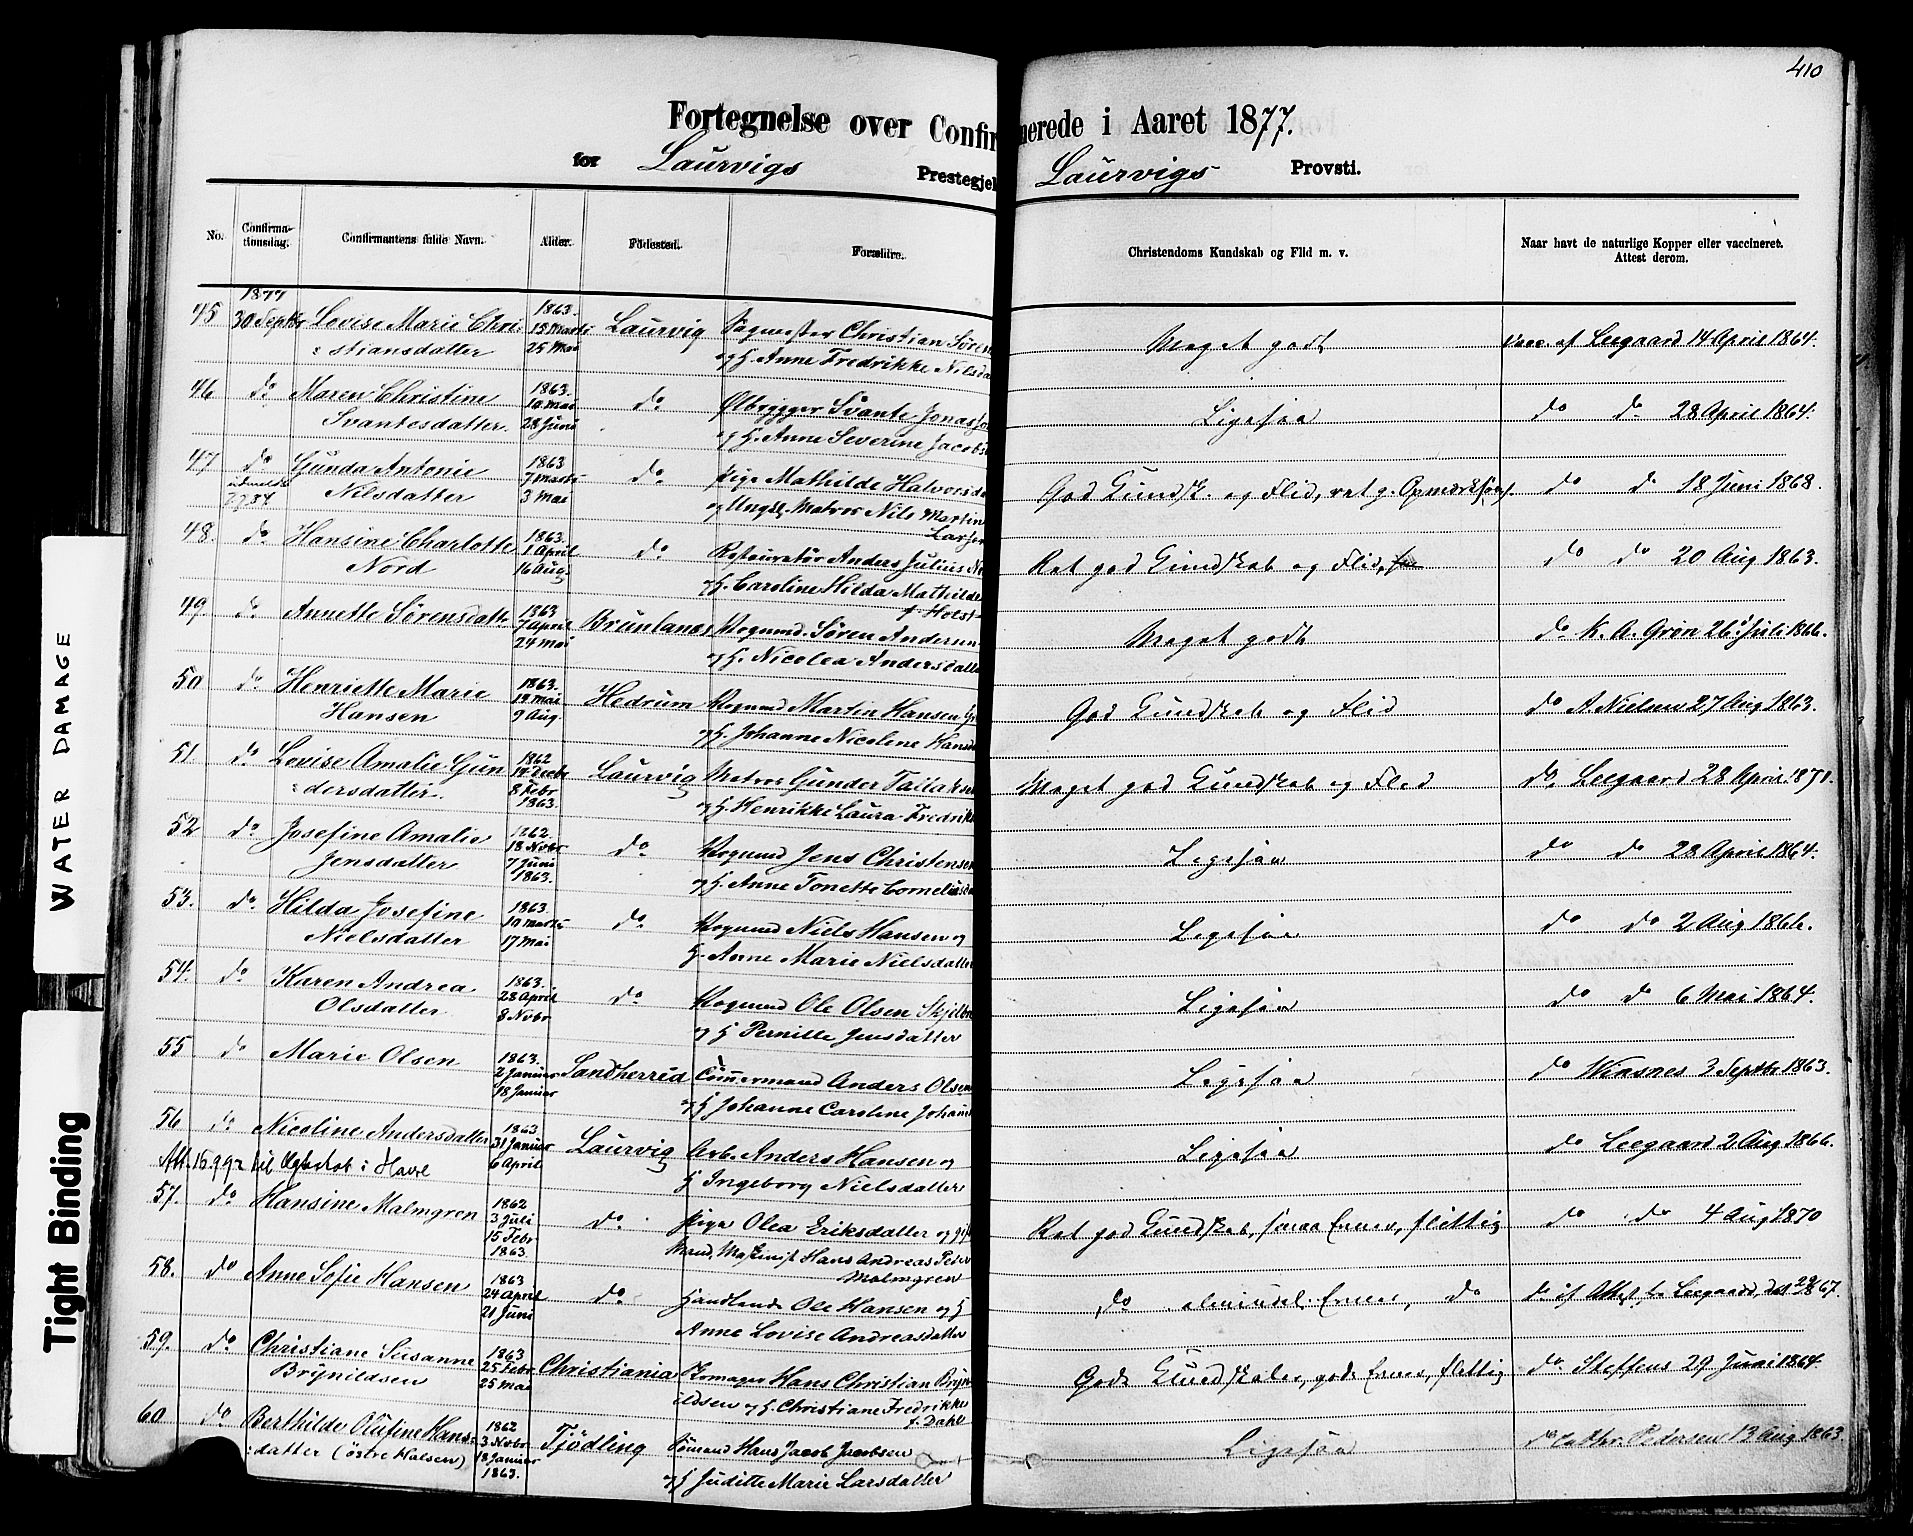 410
Fortegnelse over Confir
merede i Aaret 1877.
for Laurvigs Prestegjel
Laurvigs Provsti.
No.
Confirma-
tionsdag.
Confirmantens fulde Navn.
Alder.
Fødested.
Forældre.
Christendoms Kundskab og Flid m. v.
Naar havt de naturlige Kopper eller vaccineret.
Attest derom.
1877
45 30 Septbr Lovise Marie Chri- 1863. 15 Marts Laurvig Christian Søren Meget godt vacc. af Leegaard 14 April 1864.
stiansdatter 25 Mai og H. Anne Fredrikke Nilsda
46 do Maren Christine 1863. 10 Mai do Ølbrygger Svante Jonas Ligesaa do do 28 April 1864.
Svantesdatter. 28 Juni og H. Anne Severine Jacobs
47 do Gunda Antonie 1863 7 Marts do Pige Mathilde Halvors God Kundsk. og Flid, ret g. Opmærksomh. do do 18 Juni 1868.
udmeldt 7784 Nilsdatter 3 Mai og Ungk. Matros Nils Martin
Larsen
48. do Hansine Charlotte 1863. 1 April do Restauratør Anders Julius N Ret god Kundskab og Flid, do do 20 Aug 1863.
Nord 16 Aug. og H. Caroline Hilda Mathilde
f. Holst
49. do Annette Sørensdatt 1863 7 April Brunlanes Vognmd. Søren Andersen Meget godt do K. A. Grøn 26 Juli 1866.
24 Mai og H. Nicolea Andersdatte
50 do Henriette Marie 1863. 19 Mai Hedrum Vognmd Martin Hansen God Kundskab og Flid do A Nielsen 27 Aug 1863.
Hansen 9 Aug. og H. Johanne Nicoline Hans
51 do Lovise Amalie Gun 1862 Laurvig Matros Gunder Tallaksen Meget god Kundskab og Flid do Leegaard 28 April 1871.
dersdatter. 8 Febr 1863. og H. Henrikke Laura Fredrik
52 do Josefine Amalie 1862. 18 Novbr do Vognmd Jens Christensen Ligesaa do do 28 April 1864.
Jensdatter 7 Juni 1863. og H. Anne Tonette Cornelius
53. do Hilda Josefine 1863. 10 Marts do Vognmd Niels Hansen og Ligesaa do do 2 Aug 1866.
Nielsdatter 17 Mai H. Anne Marie Nielsdatter
54. do Karen Andrea 1863. 28 April do Vognmd Ole Olsen Ligesaa do do 6 Mai 1864.
Olsdatter 8 Novbr og H Pernille Jensdatter
55 do Marie Olsen 1863. 2 Januar Sandherred Tømmermand Anders Olsen Ligesaa do 3 Septbr 1863.
18 Januar og H Johanne Caroline Johan
56 do Nicoline Andersdatter 1863 31 Januar Laurvig Arb. Anders Hansen og Ligesaa do Leegaard 2 Aug 1866.
Att. til Ægteskab i 6 April H Ingeborg Nielsdatter
57. do Hansine Malmgren 1862 3 Juli do Pige Olea Eriksdatter og gift Ret god Kundskab, smaa Evner, flittig do do 4 Aug 1870
15 Febr 1863. Mand, Maskinist Hans Andreas Peder
Malmgren
58. do Anne Sofie Hansen 1863 24 April do Handlende Ole Hansen og H do almindel. Evner, do do Leegaard,
21 Juni Anne Lovise Andreasdatter
59. do Christiane Susanne 1863 25 Febr Christiania Skomager Hans Christian Bryn Gode Kundskaber, gode Evner, flittig do Steffens 29 Juni 1864.
Brynildsen 25 Mai ildsen og H. Christiane Fredrikke
f. Dahl
60. do Berthilde Olufine Hans- 1862 3 Novbr Tjødling Sømand Hans Jacob Jacobsen Ligesaa do Pedersen 13 Aug 1863.
datter (østre Halsen) 18 Januar 1863. og H Juditte Marie Larsdatter
WATER DAMAGE
Tight Binding